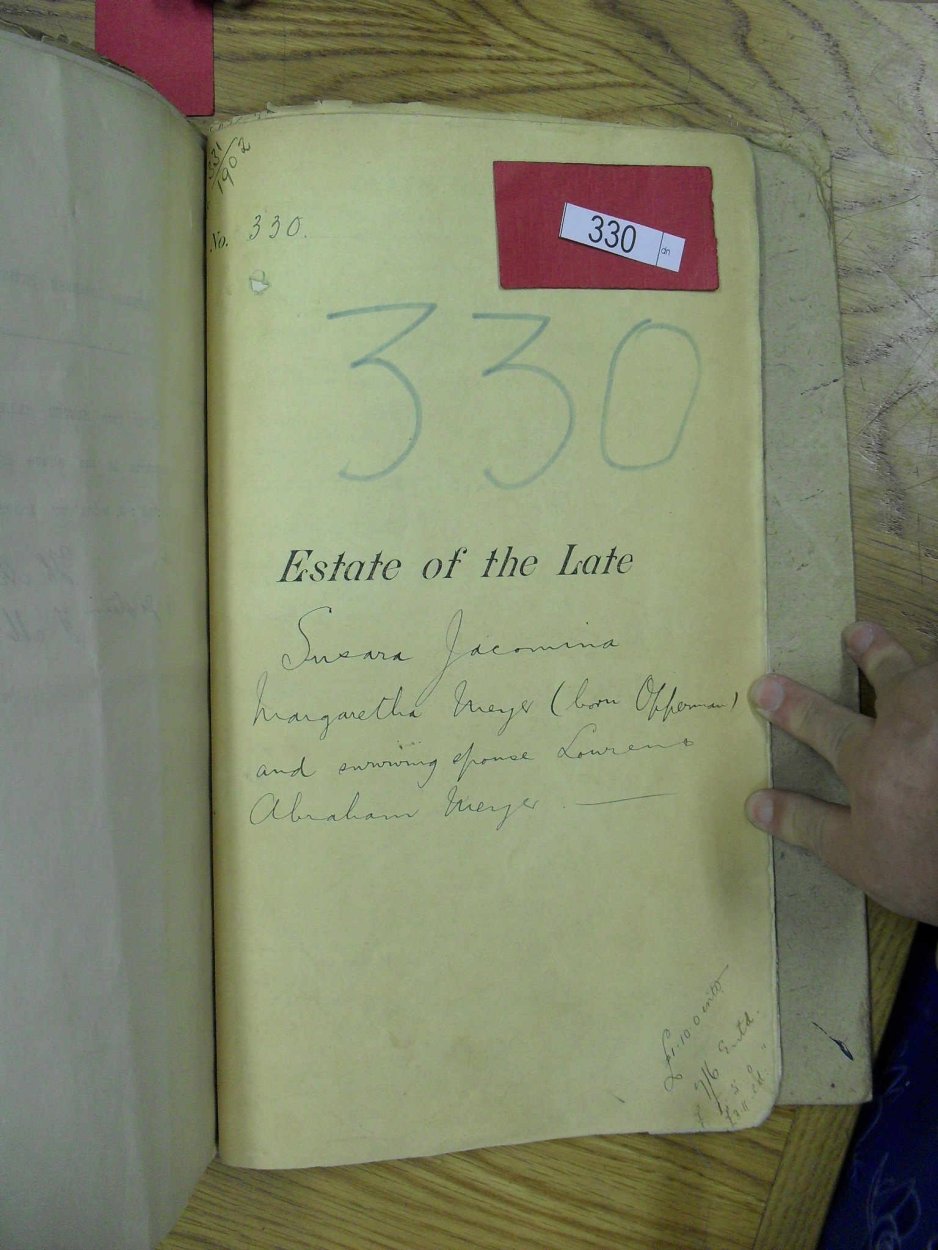 331/1902
No. 330.
330
330
Estate of the Late
Susara Jacomina
Margaretha Meyer (born Opperman)
and surviving spouse Lourens
Abraham Meyer